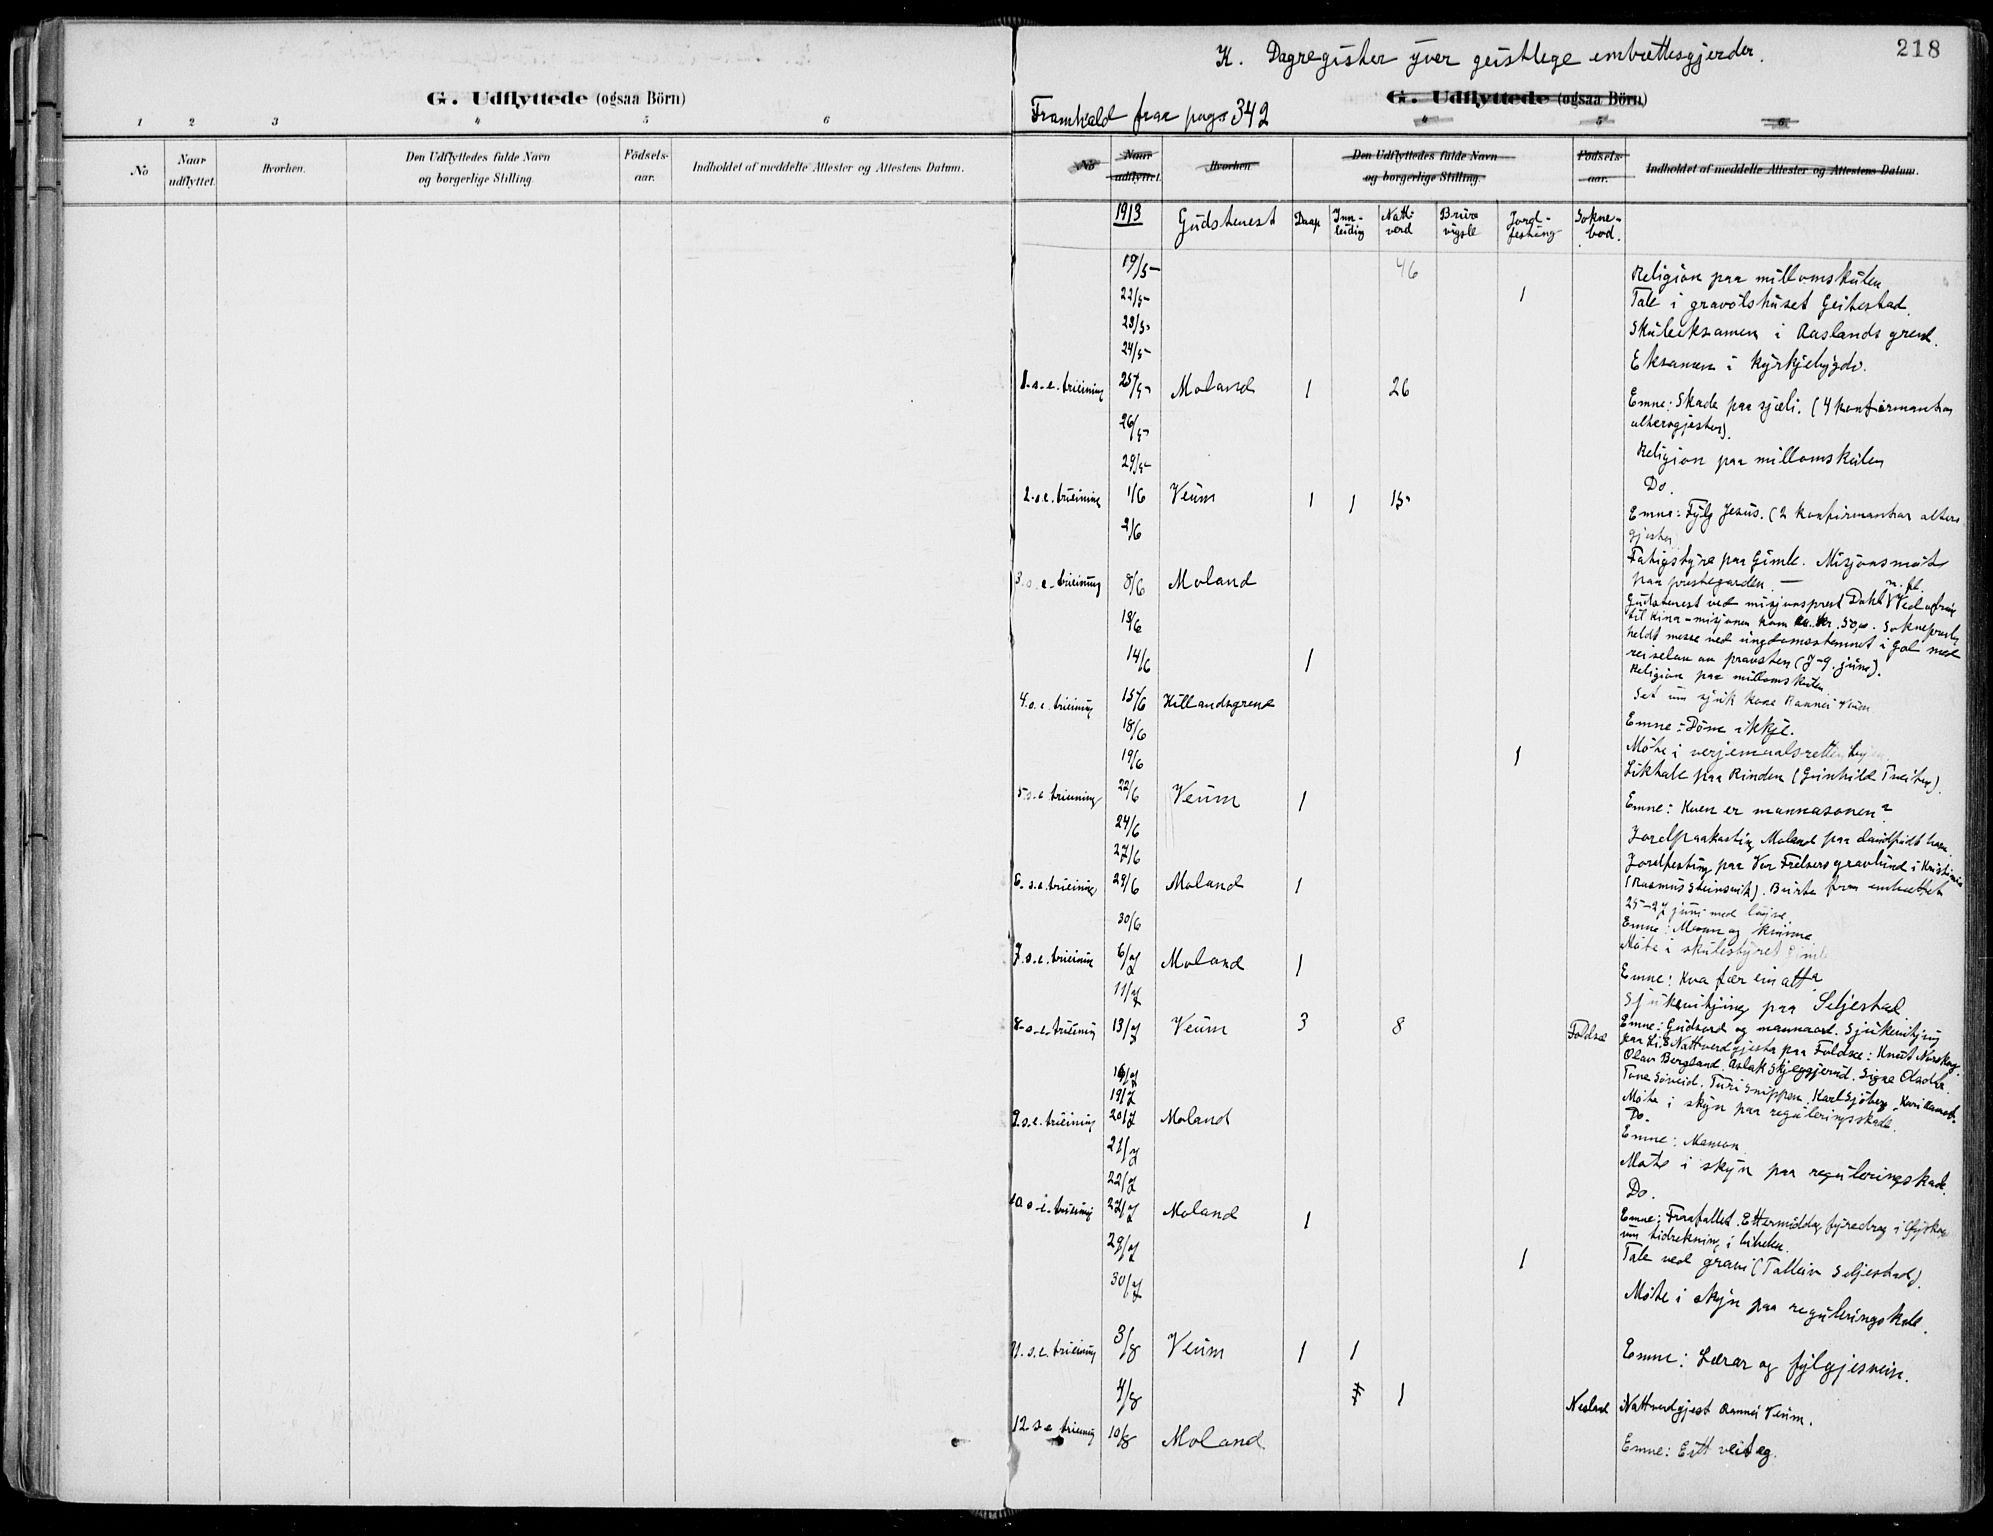 G. Udflyttede (ogsaa Börn)
1 2 3 4 5 6
No
Naar udflyttet.
Hvorhen.
Den Udflyttedes fulde Navn og borgerlige Stilling.
Födsels-aar.
Indholdet af meddelte Attester og Attestens Datum.
218
K. Dagregister yver geistlege embættesgjerder.
G. Udflyttede (ogsaa Börn)
Framhald fraa pag. 342
4 5 6
No
Naar udflyttet.
Hvorhen
Den Udflyttedes fulde Navn og borgerlige Stilling.
Födsels-aar.
Indholdet af meddelte Attester og Attestens Datum.
1913 Gudstenest Daap Inn-leiding Natt-verd Bruravigsle Jord-festing Sokne-bod.
19/5 46 Religion paa millomskulen
22/5 1 Tale i gravölshuset Geitestad.
23/5 Skuleeksamen i Aaslands grend.
24/5 Eksamen i kyrkjebygdi.
1. s. e. trieining 25/5 Moland 1 26 Emne: Skade paa sjæli. (4 konfirmantar
altersgjester).
26/5 Religion paa millomskulen
29/5 Do.
2. s. e. trieining 1/6 Veum 1 1 15 Emne: Fylg Jesus. (2 konfirmantar alters
gjester
2/6 Fatigstyre paa Gimle. Misjonsmöte
paa prestegarden. —
3. s. e. trieining 8/6 Moland Gudstenest ved misjonsprest Dahl m. fl.
til Kina-misjonen kom kr. 50,00. Soknepresten
heldt messe ved ungdomsstemnet i Gol med
reiselov av prosten (7-9. juni).
13/6 Religion paa millomskulen
14/6 1 Set um sjuk kone Rannei Veum
4. s. e. trieining 15/6 Hillandsgrend Emne: Döm ikkje.
18/6 Möte i verjemaalsretten
19/6 1 Liktale paa Rinden (Gunhild Tveiten).
5. s. e. trieining 22/6 Veum 1 Emne: Kven er mannasonen?
24/6 Jordpaakasting Moland paa
27/6 Jordfesting paa Vor Frelsers gravlund i Kristiania
(Rasmus Steinsvik). Burte fraa embættet
25-27 juni med löyve
6. s. e. trieining 29/6 Moland 1 Emne: Mann og kvinne
30/6 Möte i skulestyret
7. s. e. trieining 6/7 Moland 1 Emne: Kva fær ein att?
11/7 Sjukevitjing paa Seljestad
8. s. e. trieining 13/7 Veum 3 8 Foldsæ Emne: Gudsord og mannaord. Sjukevitjing
paa Li. 8 Nattverdgjester paa Foldsæ: Knut Norskog.
Olav Bergland. Aslak Skjeggjerud. Signe
Tone Söveid. Turi Snippen. Karl Sjöberg. Kari
16/7 Möte i skyn paa reguleringsskade.
19/7 Do.
9. s. e. trieining 20/7 Moland Emne: Mamon
21/7 Möte i skyn paa reguleringskade.
22/7 Do.
10. s. e. trieining 27/7 Moland 1 Emne: Fraafallet. Ettermiddag fyredrag i
um tidrekning i bibelen.
29/7 1 Tale ved gravi (Talleiv Seljestad).
30/7 Möte i skyn paa reguleringskade.
11. s. e. trieining 3/8 Veum 1 1 Emne: Lærar og fylgjesvein.
4/8 1 Nesland Nattverdgjest Rannei Veum.
12 s e trieining 10/8 Moland Emne: Eitt veit eg.